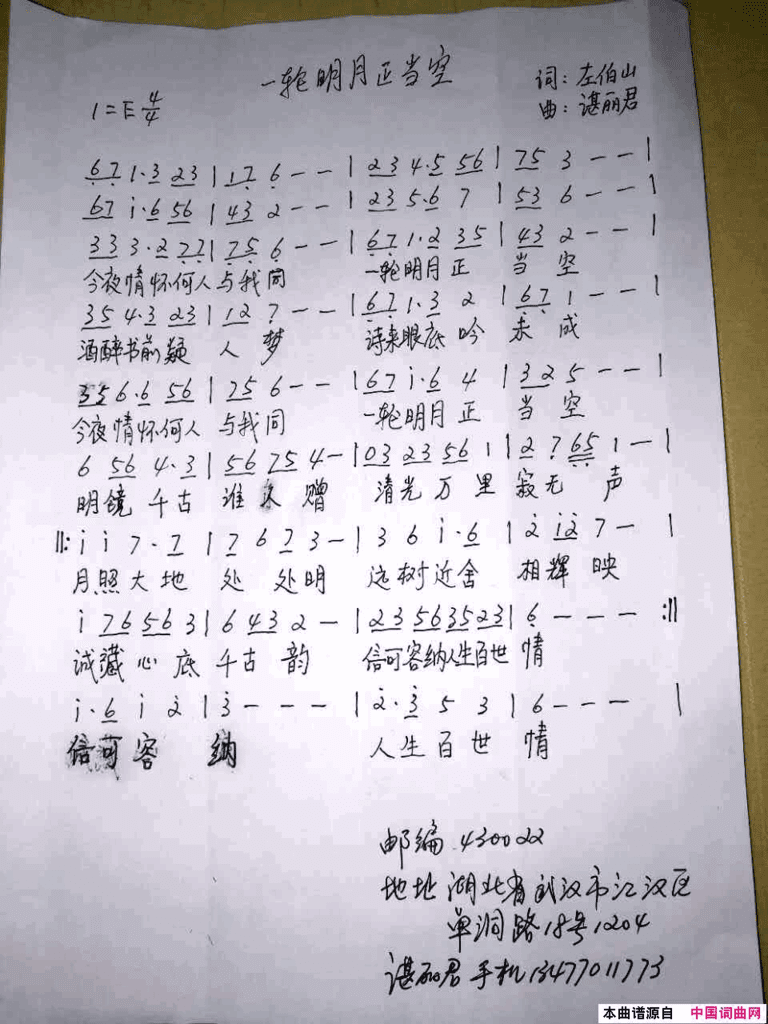 一轮明月正当空
1=E 4/4
词:左伯山
曲:谌丽君
67 1·3 23 | 17 6 - - | 23 4·5 56 | 75 3 - - |
67 i·6 56 | 43 2 - - | 23 5·6 7 | 53 6 - - |
333 3·2 77 | 75 6 - - | 67 1·2 35 | 43 2 - - |
今夜情怀何人 与我同 一轮明月正 当 空
35 4·3 23 | 12 7 - - | 67 1·3 2 | 67 1 - - |
酒醉书前疑 人 梦 诗来眼底吟 未 成
355 6·6 56 | 75 6 - - | 67 i·6 4 | 32 5 - - |
今夜情怀何人 与我同 一轮明月正 当 空
6 56 4·3 | 56 75 4 - | 03 23 56 1 | 2 7 65 1 - |
明镜千古 谁 赠 清光万里 寂无 声
‖: i i 7·7 | 7 6 7 3 - | 3 6 i·6 | 2 i2 7 - |
月照大地 处 处明 远树近舍 相辉 映
i 76 56 3 | 6 43 2 - | 23 56 35 23 | 6 - - - :‖
诚藏心底 千古 韵 信可容纳人生百世 情
i·6 i 2 | 3 - - - | 2·3 5 3 | 6 - - - |
信可容 纳 人生百世 情
邮编 430022
地址 湖北省武汉市江汉区
单洞路18号1204
谌丽君 手机13477011773
本曲谱源自 中国词曲网